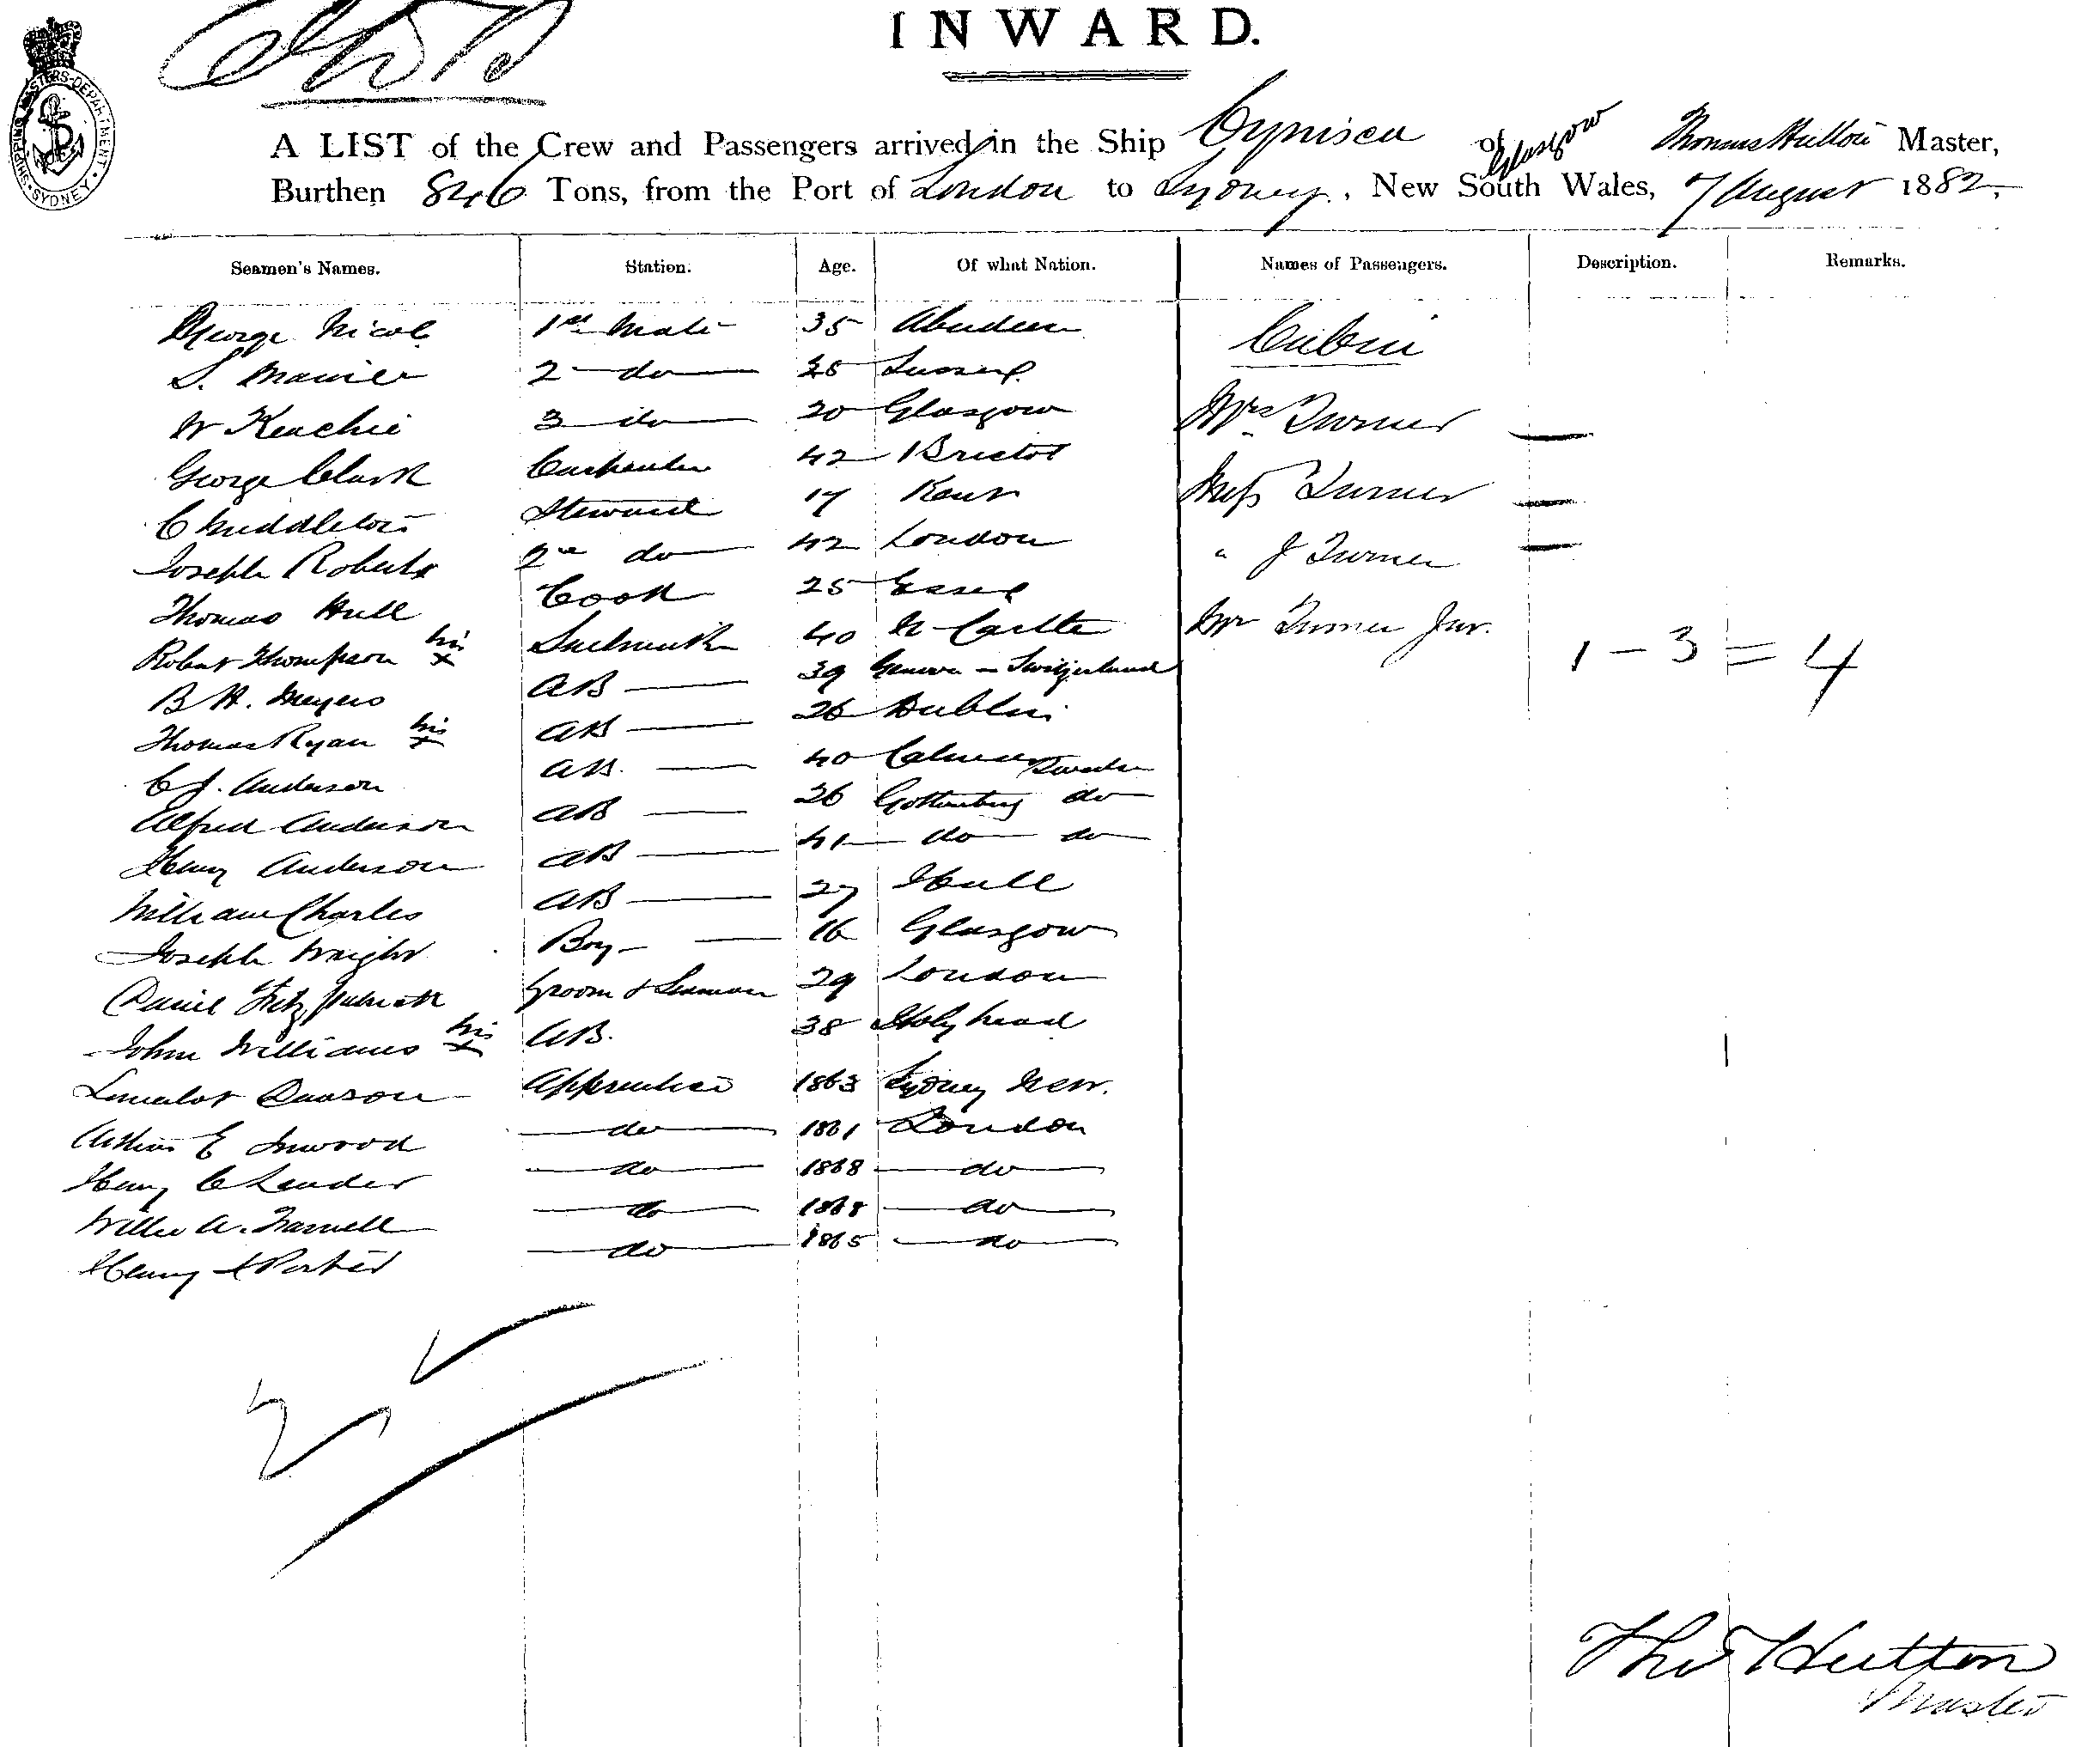 INWARD.
SHIPPING MASTERS-DEPARTMENT
SYDNEY
A LIST of the Crew and Passengers arrived in the Ship Cynisca of Glasgow Thomas Hutton Master,
Burthen 846 Tons, from the Port of London to Sydney, New South Wales, 7 August 1882.
Seamen's Names. Station. Age. Of what Nation. Names of Passengers. Description. Remarks.
George Nicol 1st Mate 35 Aberdeen Cabin
S. 2 do 25 Sussex
W Keachie 3 do 20 Glasgow Mrs Turner
George Clark Carpenter 42 Bristol
C Middleton Steward 17 Kent Miss Turner
Joseph Roberts 2nd do 42 London " J Turner
Thomas Hull Cook 25 Essex
Robert Thompson his x Sailmaker 40 N Castle Mr Turner Jnr. 1 - 3 = 4
B H. Meyers AB 39 Geneva - Switzerland
Thomas Ryan his x AB 26 Dublin
C J. Anderson AB. 40 Calmar Sweden
Alfred Anderson AB 26 Gottenburg do
Henry Anderson AB 41 do do
William Charles AB 27 Hull
Joseph Wright Boy 16 Glasgow
Daniel Fitzpatrick Groom & Seaman 29 London
John Williams his x AB. 38 Holyhead
Lancelot Dawson Apprentice 1863 Sydney NSW.
Arthur E Inwood do 1861 London
Henry C Lander do 1868 do
Willie A. Farnell do 1868 do
Henry Porter do 1865 do
Thos Hutton
Master